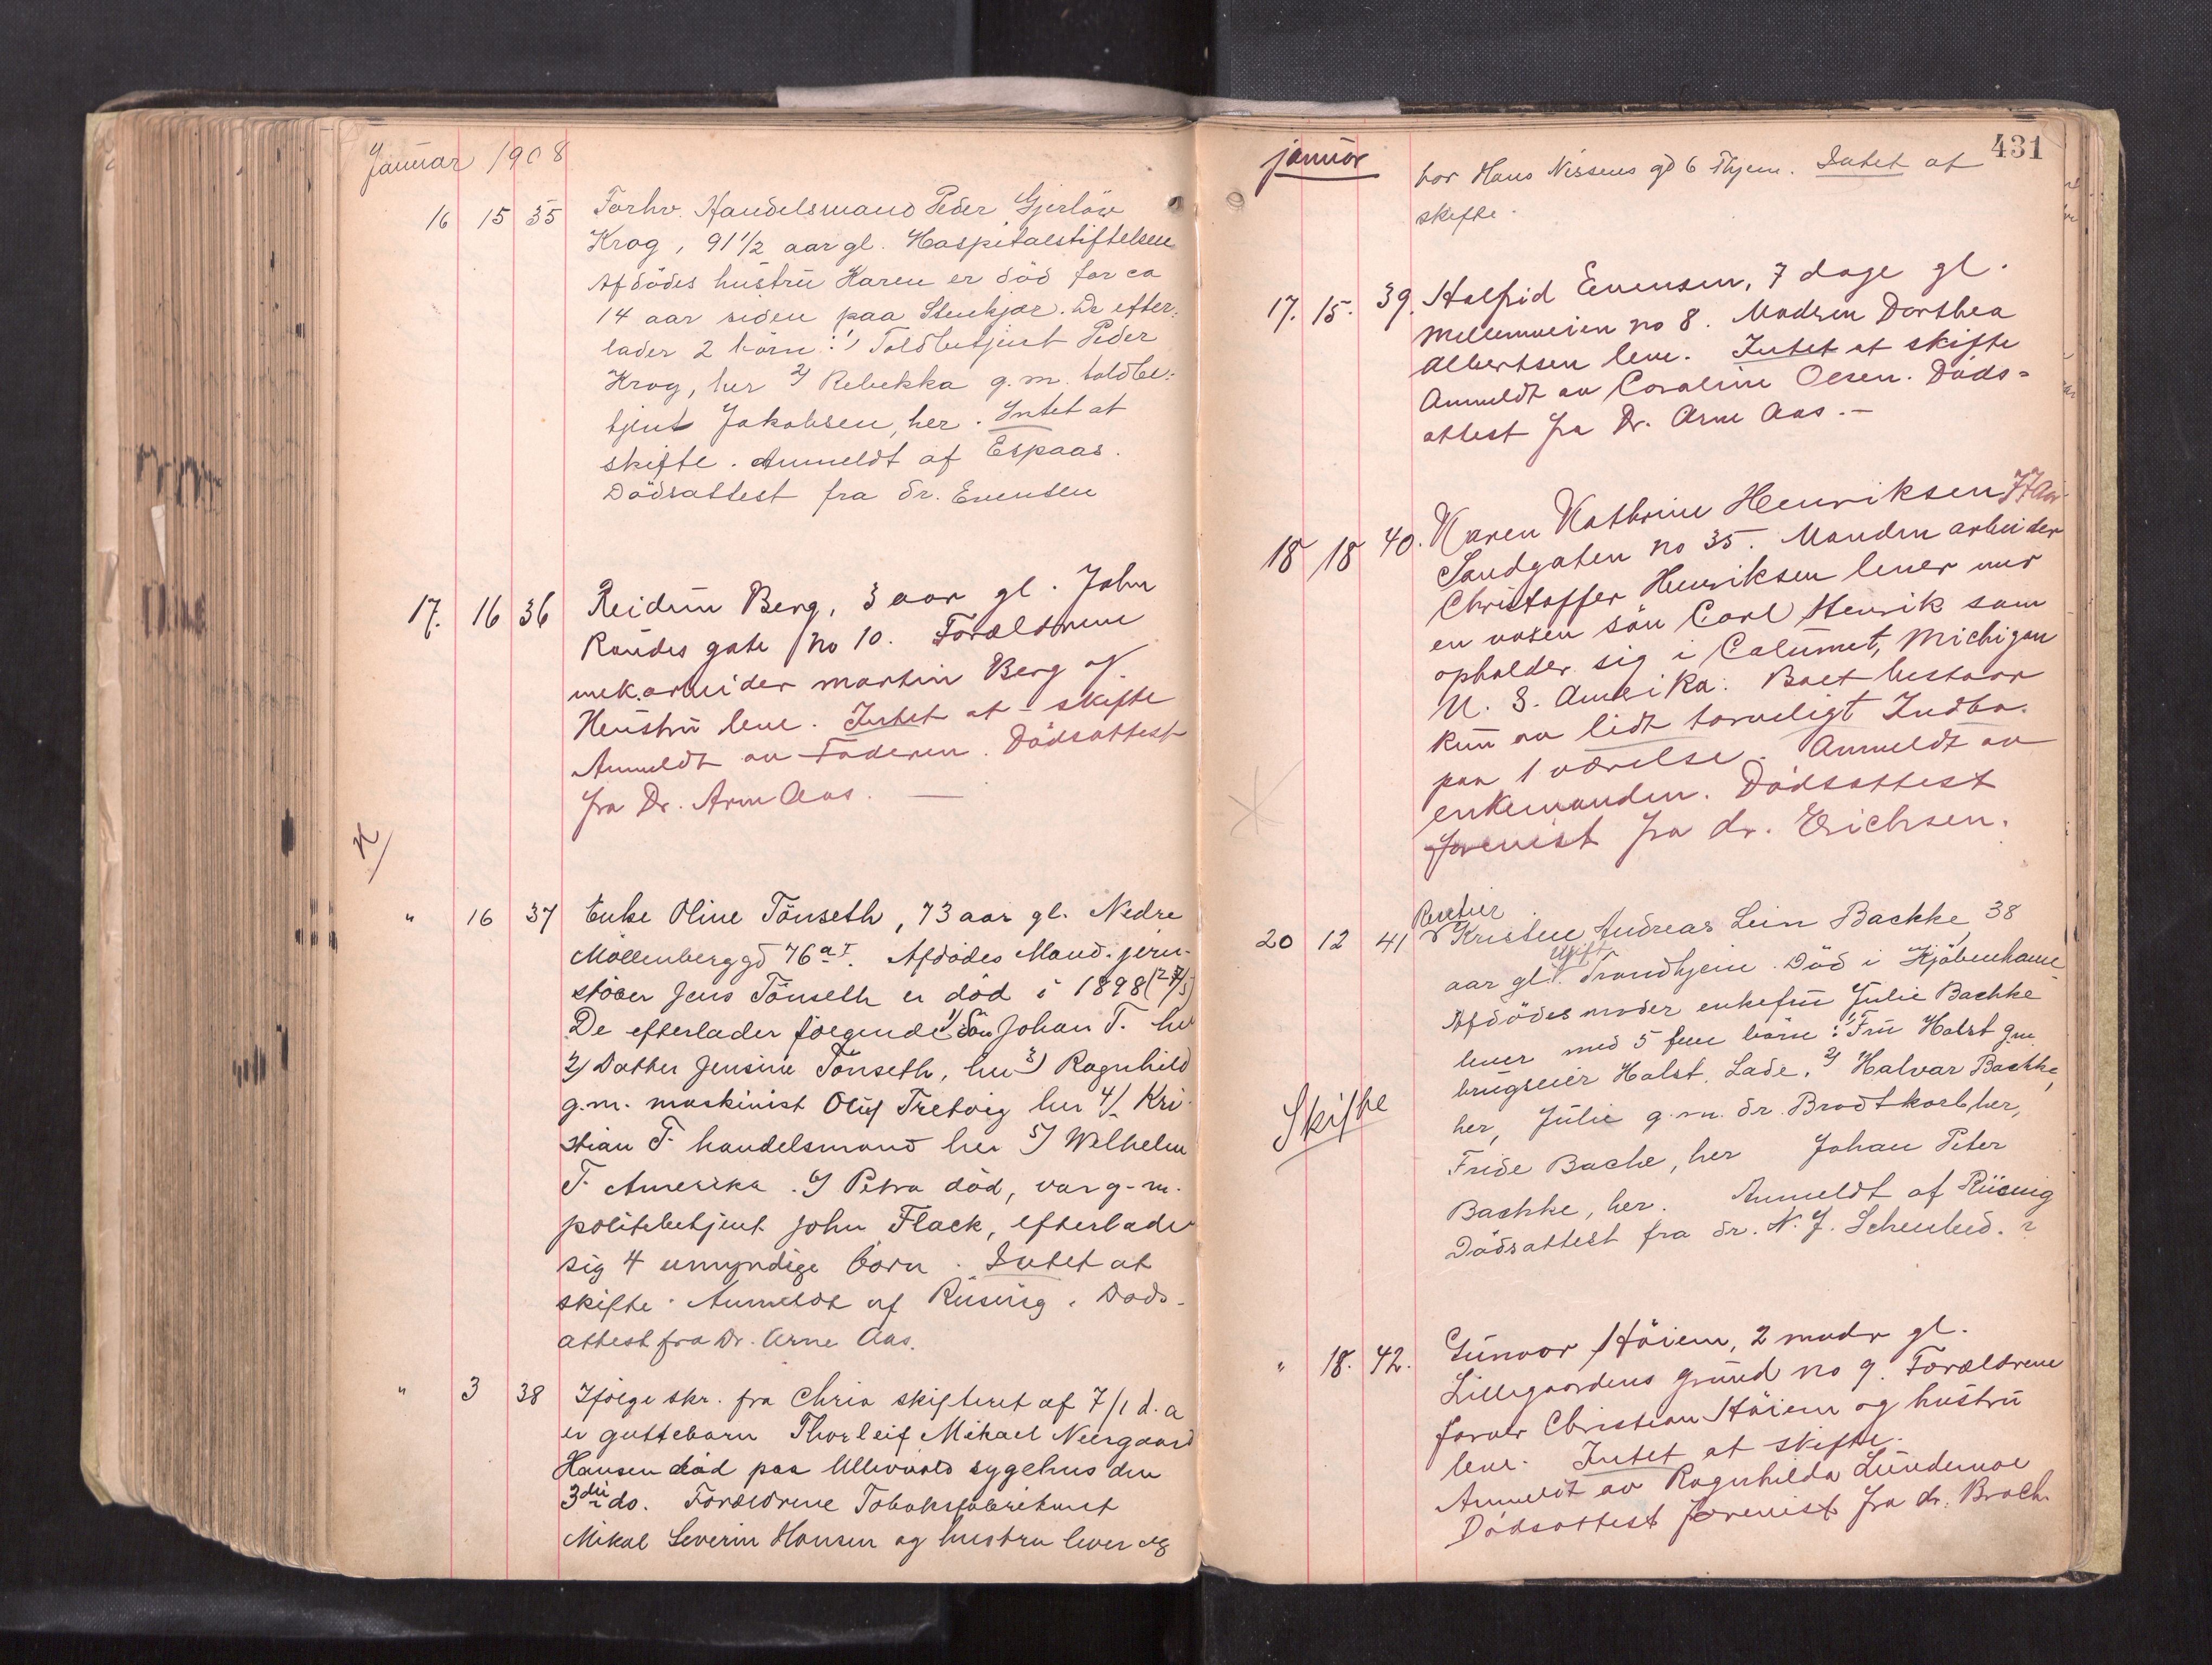 Januar 1908
16 15 35 Forhv. Handelsmand Peder Gjerløw
Krog, 91 1/2 aar gl. Hospitalstiftelsen
Afdødes hustru Karen er død for ca
14 aar siden paa Stenkjær. De efter-
lader 2 børn: 1) Toldbetjent Peder
Krog, her 2) Rebekka g.m. toldbe-
tjent Jakobsen, her. Intet at
skifte. Anmeldt af Espaas.
Dödsattest fra dr. Evensen
17. 16 36 Reidun Berg, 3 aar gl. John
Raudes gate No 10. Forældrene
mek.arbeider Martin Berg og
Heustru leve. Intet at skifte
Anmeldt av Faderen. Dödsattest
fra Dr. Arne Aas. —
" 16 37 Enke Oline Tönseth, 73 aar gl. Nedre
Möllenberggd 76 a I. Afdödes Mand jern-
støber Jens Tönseth er död i 1898 (27/5)
De efterlader fölgende 1) Sön Johan T. her
2) Datter Jensine Tönseth, her 3) Ragnhild
g.m. maskinist Oluf Tretvig her 4) Kri-
stian T. handelsmand her 5) Wilhelm
T. Amerika. 6) Petra död, var g.m.
politibetjent John Flack, efterlader
sig 4 umyndige börn. Intet at
skifte. Anmeldt af Rüsing. Döds-
attest fra Dr. Arne Aas.
" 3 38 Ifölge skr. fra Chria skifteret af 7/1 d.a
er guttebarn Thorleif Mikael Neergaard
Hansen död paa Ullevaals sygehus den
3die do. Forældrene Tobaksfabrikant
Mikal Severin Hansen og hustru lever og
431
januar
bor Hans Nissens gd 6 Thjem. Intet at
skifte.
17. 15. 39. Halfrid Evensen, 7 dage gl.
Mellemveien no 8. Modren Dorthea
Albertsen leve. Intet at skifte
Anmeldt av Coraline Olsen. Döds=
attest fra Dr. Arne Aas. —
18 18 40. Karen Kathrine Henriksen 77 Aar
Sandgaten no 35. Manden arbeider
Christoffer Henriksen lever med
en voxen sön Carl Henrik som
opholder sig i Calumet, Michigan
U. S. Amerika. Boet bestaar
kun av lidt tarveligt Indbo.
paa 1 værelse. Anmeldt av
enkemanden. Dödsattest
forevist fra dr. Erichsen.
20 12 41 Rentier
Kristen Andreas Lein Bachke, 38
aar gl. ugift Trondhjem. Död i Kjöbenhavn
Afdödes moder enkefru Julie Bachke
lever med 5 börn: 1) Fru Holst gm
brugseier Holst, Lade, 2) Halvar Bachke,
her, Julie g.m. dr. Brodtkorb her,
Skifte
Fride Bache, her Johan Peter
Bachke, her. Anmeldt af Rüsing
Dödsattest fra dr. N. J.
" 18. 42. Gunvor Höiem, 2 mndr gl.
Lillegaardens grund no 9. Forældrene
farver Christian Höiem og hustru
leve. Intet at skifte.
Anmeldt av Ragnhilda Lundemoe
Dödsattest forevist fra dr. Brock